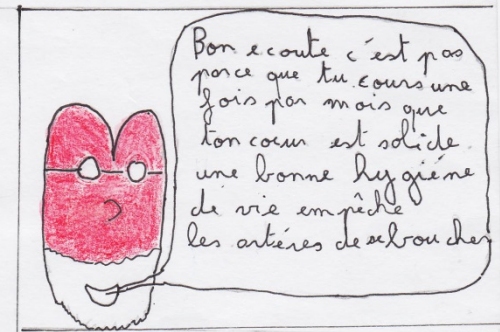 Bon ecoute c'est pas
parce que tu cours une
fois par mois que
ton cœur est solide
une bonne hygiéne
de vie empêche
les artéres de se boucher